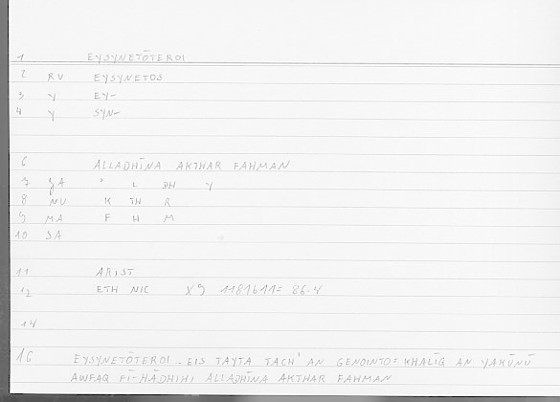 1 EYSYNETŌTEROI
2 RV EYSYNETOS
3 Y EY-
4 Y SYN-
6 ALLADHĪNA AKTHAR FAHMAN
7 ZA ' L DH Y
8 NU K TH R
9 MA F H M
10 SA
11 ARIST
12 ETH NIC X9 1181b11= 86.4
14
16 EYSYNETŌTEROI . EIS TAYTA TACH' AN GENOINTO= KHALĪQ AN YAKŪNŪ
AWFAQ FĪ-HĀDHIHI ALLADHĪNA AKTHAR FAHMAN